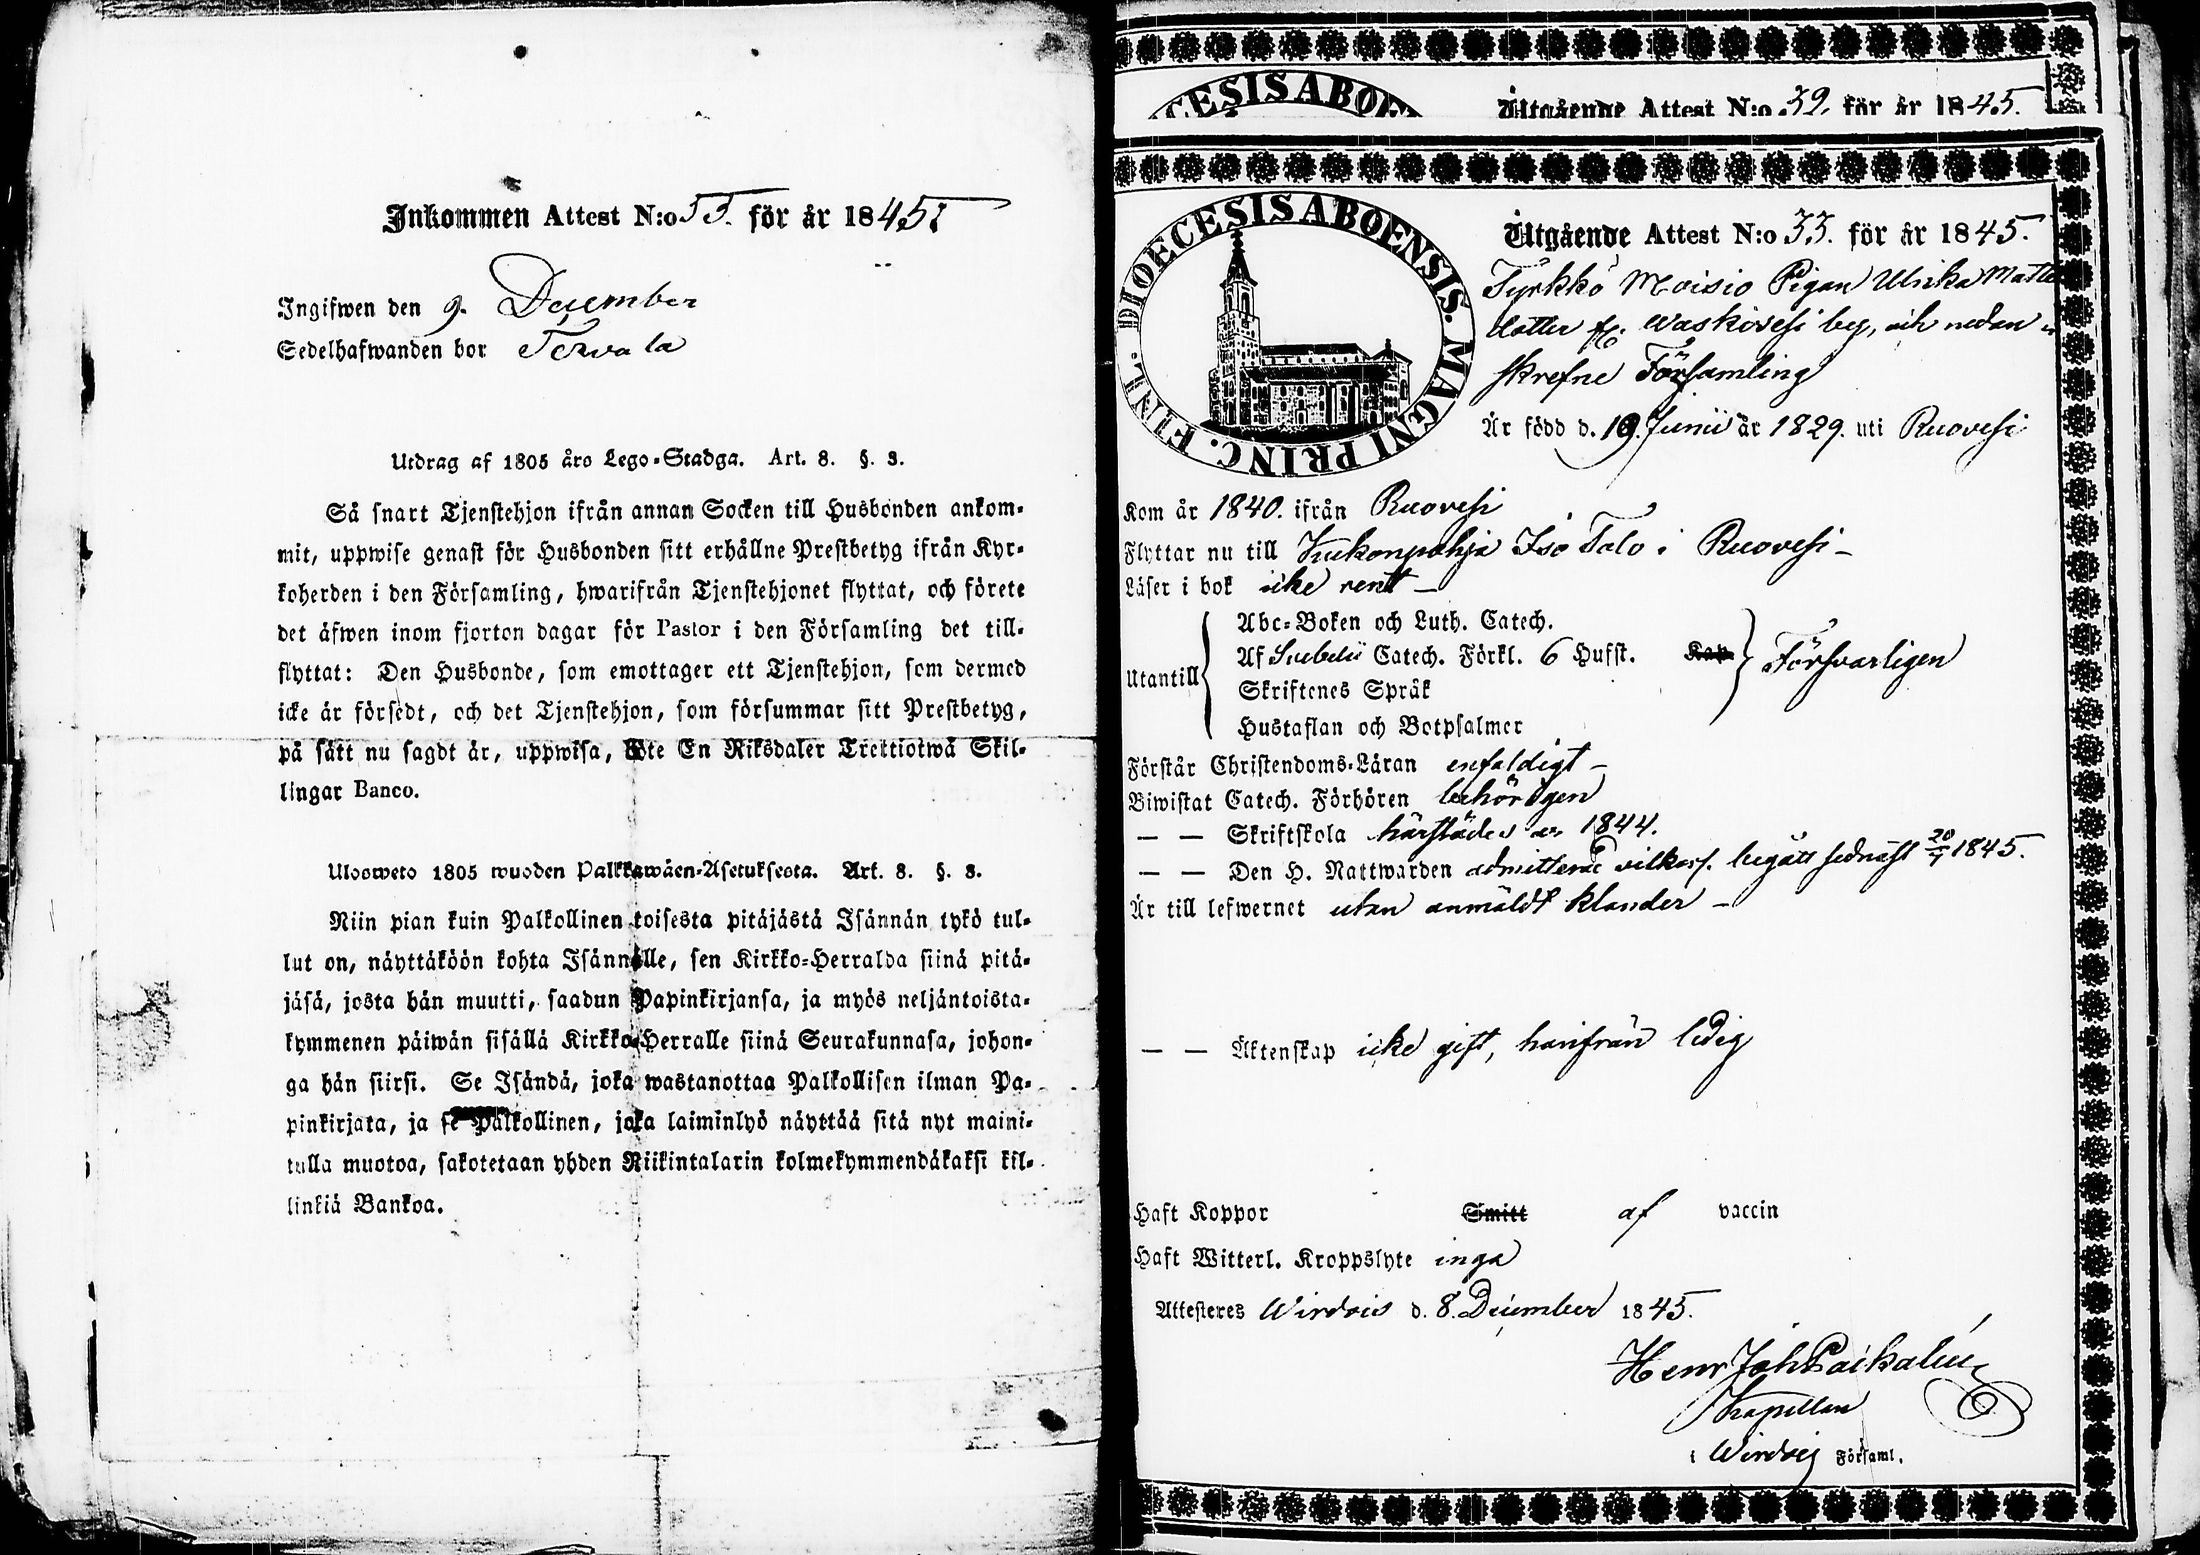 Inkommen Attest N:o 55. för år 1845.
Ingifwen den 9. December
Sedelhafwanden bor Tervala
Utdrag af 1805 års Lego-Stadga. Art. 8. §. 3.
Så snart Tjenstehjon ifrån annan Socken till Husbonden ankom-
mit, uppwise genast för Husbonden sitt erhållne Prestbetyg ifrån Kyr-
koherden i den Församling, hwarifrån Tjenstehjonet flyttat, och förete
det äfwen inom fjorton dagar för Pastor i den Församling det till-
flyttat: Den Husbonde, som emottager ett Tjenstehjon, som dermed
icke är försedt, och det Tjenstehjon, som försummar sitt Prestbetyg,
på sätt nu sagdt är, uppwisa, böte En Riksdaler Trettiotwå Skil-
lingar Banco.
Ulosweto 1805 wuoden Palkkawäen-Asetuksesta. Art. 8. §. 3.
Niin pian kuin Palkollinen toisesta pitäjästä Isännän tykö tul-
lut on, näyttäköön kohta Isännälle, sen Kirkko-Herralda siinä pitä-
jäsä, josta hän muutti, saadun Papinkirjansa, ja myös neljäntoista-
kymmenen päiwän sisällä Kirkko-Herralle siinä Seurakunnasa, johon-
ga hän siirsi. Se Isändä, joka wastanottaa Palkollisen ilman Pa-
pinkirjata, ja se Palkollinen, joka laiminlyö näyttää sitä nyt maini-
tulla muotoa, sakotetaan yhden Riikintalarin kolmekymmendäkaksi kil-
linkiä Bankoa.
CESIS ABOE
Utgående Attest N:o 39. för år 1845.
DIOECESIS ABOENSIS. MAGNI PRINC. FINL.
Utgående Attest N:o 33. för år 1845.
Tyrkkö Moisio Pigan Ulrika Matts
dotter fr. Waskivesi by, och nedan
skrefne Församling
Är född d. 19. Junii år 1829. uti Ruovesi
Kom år 1840. ifrån Ruovesi
Flyttar nu till Kukonpohja Iso Talo i Ruovesi
Läser i bok icke rent
Utantill
Abc-Boken och Luth. Catech.
Af Svebelii Catech. Förkl. 6 Hufst. Kap.
Skriftenes Språk
Hustaflan och Botpsalmer
Försvarligen
Förstår Christendoms-Läran enfaldigt
Biwistat Catech. Förhören behörigen
— — Skriftskola härstädes år 1844.
— — Den H. Nattwarden admitterad begått sednast 20/7 1845.
Är till lefwernet utan anmäldt klander
— — Äktenskap icke gift, härifrån ledig
Haft Koppor Smitt af vaccin
Haft Witterl. Kroppslyte inga
Attesteres Wirdois d. 8. December 1845.
Henr Joh Paikalin
Kapellan
i Wirdois Församl.